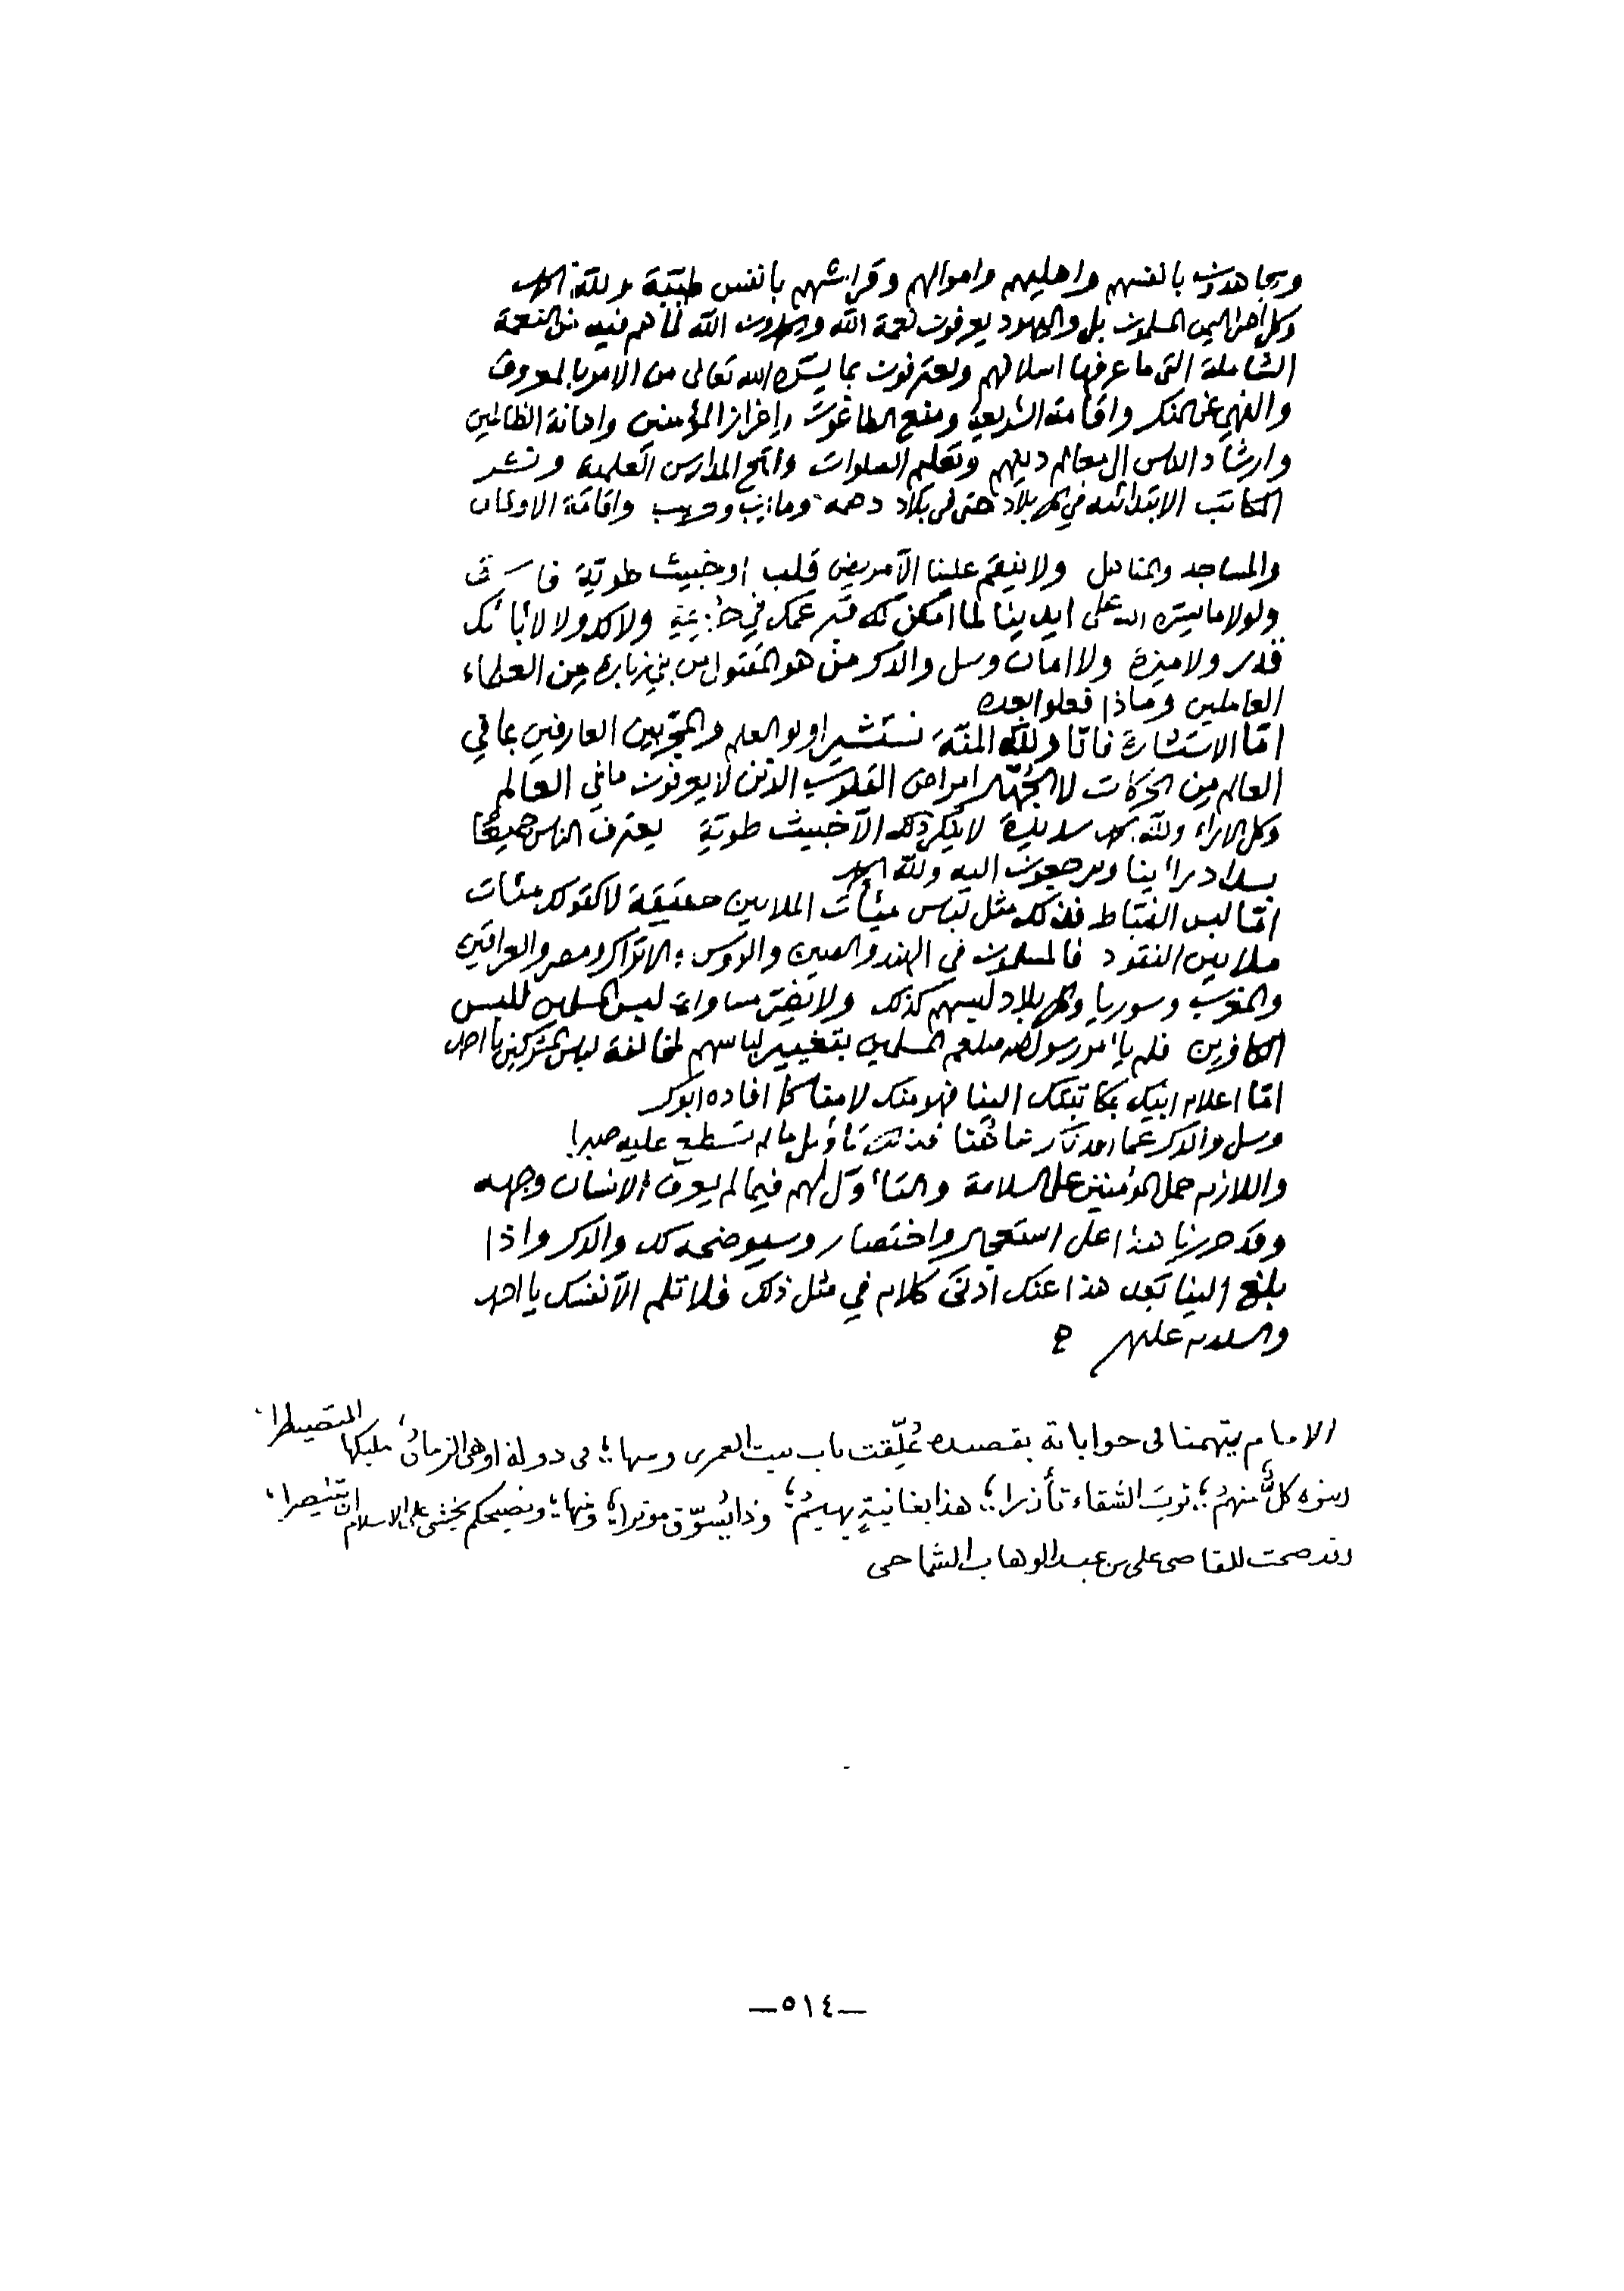 ويجاهدون بانفسهم واهليهم واموالهم وقرائبهم بانفس طيبة ولله الحمد
وكل اهل اليمن المسلمون بل واليهود يعرفون نعمة الله ويحمدون الله لما هم فيه من النعمة
الشاملة التي ما عرفها اسلافهم ويعترفون بما يسره الله تعالى من الامر بالمعروف
والنهي عن المنكر واقامة الشريعة ومنع الطاغوت واعزاز المؤمنين واهانة الظالمين
وارشاد الناس الى معالم دينهم وتعليم الصلوات وفتح المدارس العلمية ونشر
المكاتب الابتدائيه في كل بلاد حتى في بلاد دهمه وما زيب واقامة الاوقاف
والمساجد والمناهل ولا ينقم علينا الا مريض قلب او خبيث طوية فاسق
ولولا ما يسره الله على ايدينا لما امكن لك قبر عمك في خزيمة ولا لك ولا لآبائك
قدر ولا ميزة ولا امان وسل والدك من هو المقتول من بني زبارة من العلماء
العاملين وماذا فعلوا بعده
امّا الاستشارة فانّا ولله المنّة نستشير اولو العلم والمجرّبين العارفين بما في
العالم من الحركات لا الجهّال امراض القلوب الذين لا يعرفون ما في العالم
وكل الاراء ولله الحمد سديدة لا ينكر ذلك الّا خبيث طويّةٍ يعترف الناس جميعًا
بسداد رأينا ويرجعون اليه ولله الحمد
امّا لبس الضبّاط فذلك مثل لباس مئات الملايين حقيقة لا كقولك مئات
ملايين النقود فالمسلمون في الهند والصين والروس والاتراك ومصر والعراقين
والمغرب وسوريا وكل بلاد لبسهم كذلك ولا يضر مساواة لبس المسلمين للبس
الكافرين فلم يأمر رسول الله صلعم المسلمين بتغيير لباسهم لمخالفة لباس المشركين يا احمد
امّا اعلام ابنيك بمكاتبتك الينا فهو منك لا منا كما افاده ابوك
وسل والدك عما شافهنا فذلك تأويل ما لم تسطع عليه صبرا
واللازم حمل المؤمنين على السلامة والتأوّل لهم فيما لم يعرف الانسان وجهه
وقد حررنا هذا على استعجال واختصار وسيوضحه لك والدك واذا
بلغ الينا بعد هذا عنك ادنى كلام في مثل ذلك فلا تلم الّا نفسك يا احمد
والسلام عليكم
الامام يتهمنا في جواباته بقصيده عُلّقت باب بيت العمري ومنها؛ في دولة اوهى الزمانُ؛ مليكها المتصيطرا،
وبنوه كلٌ منهمُ؛؛ ثوبَ الشقاء تأزرا؛؛ هذا بغانيةٍ يهيمُ؛ وذا يُسوّق موترا؛ ومنها؛ ونصيحكم يخشى على الاسلام ان يتنصرا،
وقد صحت للقاضي علي بن عبد الوهاب الشماحي
—٥١٤—